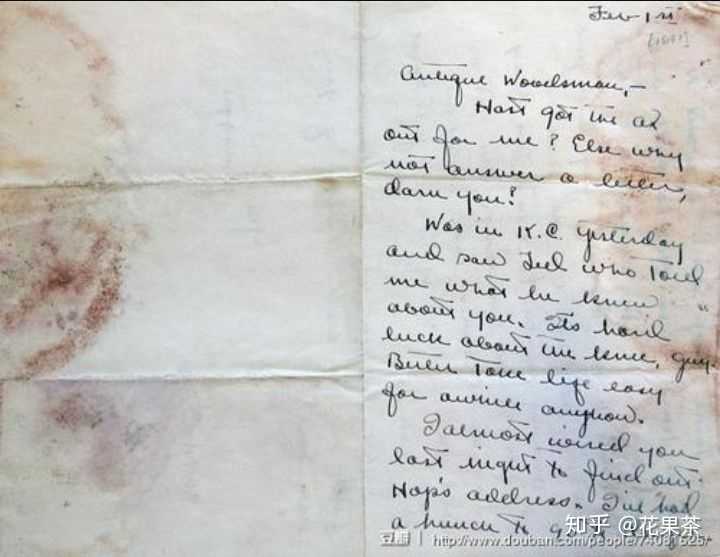 Feb 1st
Antique Woodsman,—
Hast got the ax
out for me? Else why
not answer a letter,
darn you?
Was in K.C. yesterday
and saw Ted who told
me what he knew
about you. Its hard
luck about the knee, guy.
Better take life easy
for awhile anyhow.
I almost wired you
last night to find out
Hap's address. I've had
a hunch to
知乎 @花果茶
豆瓣 http://www.douban.com/people/